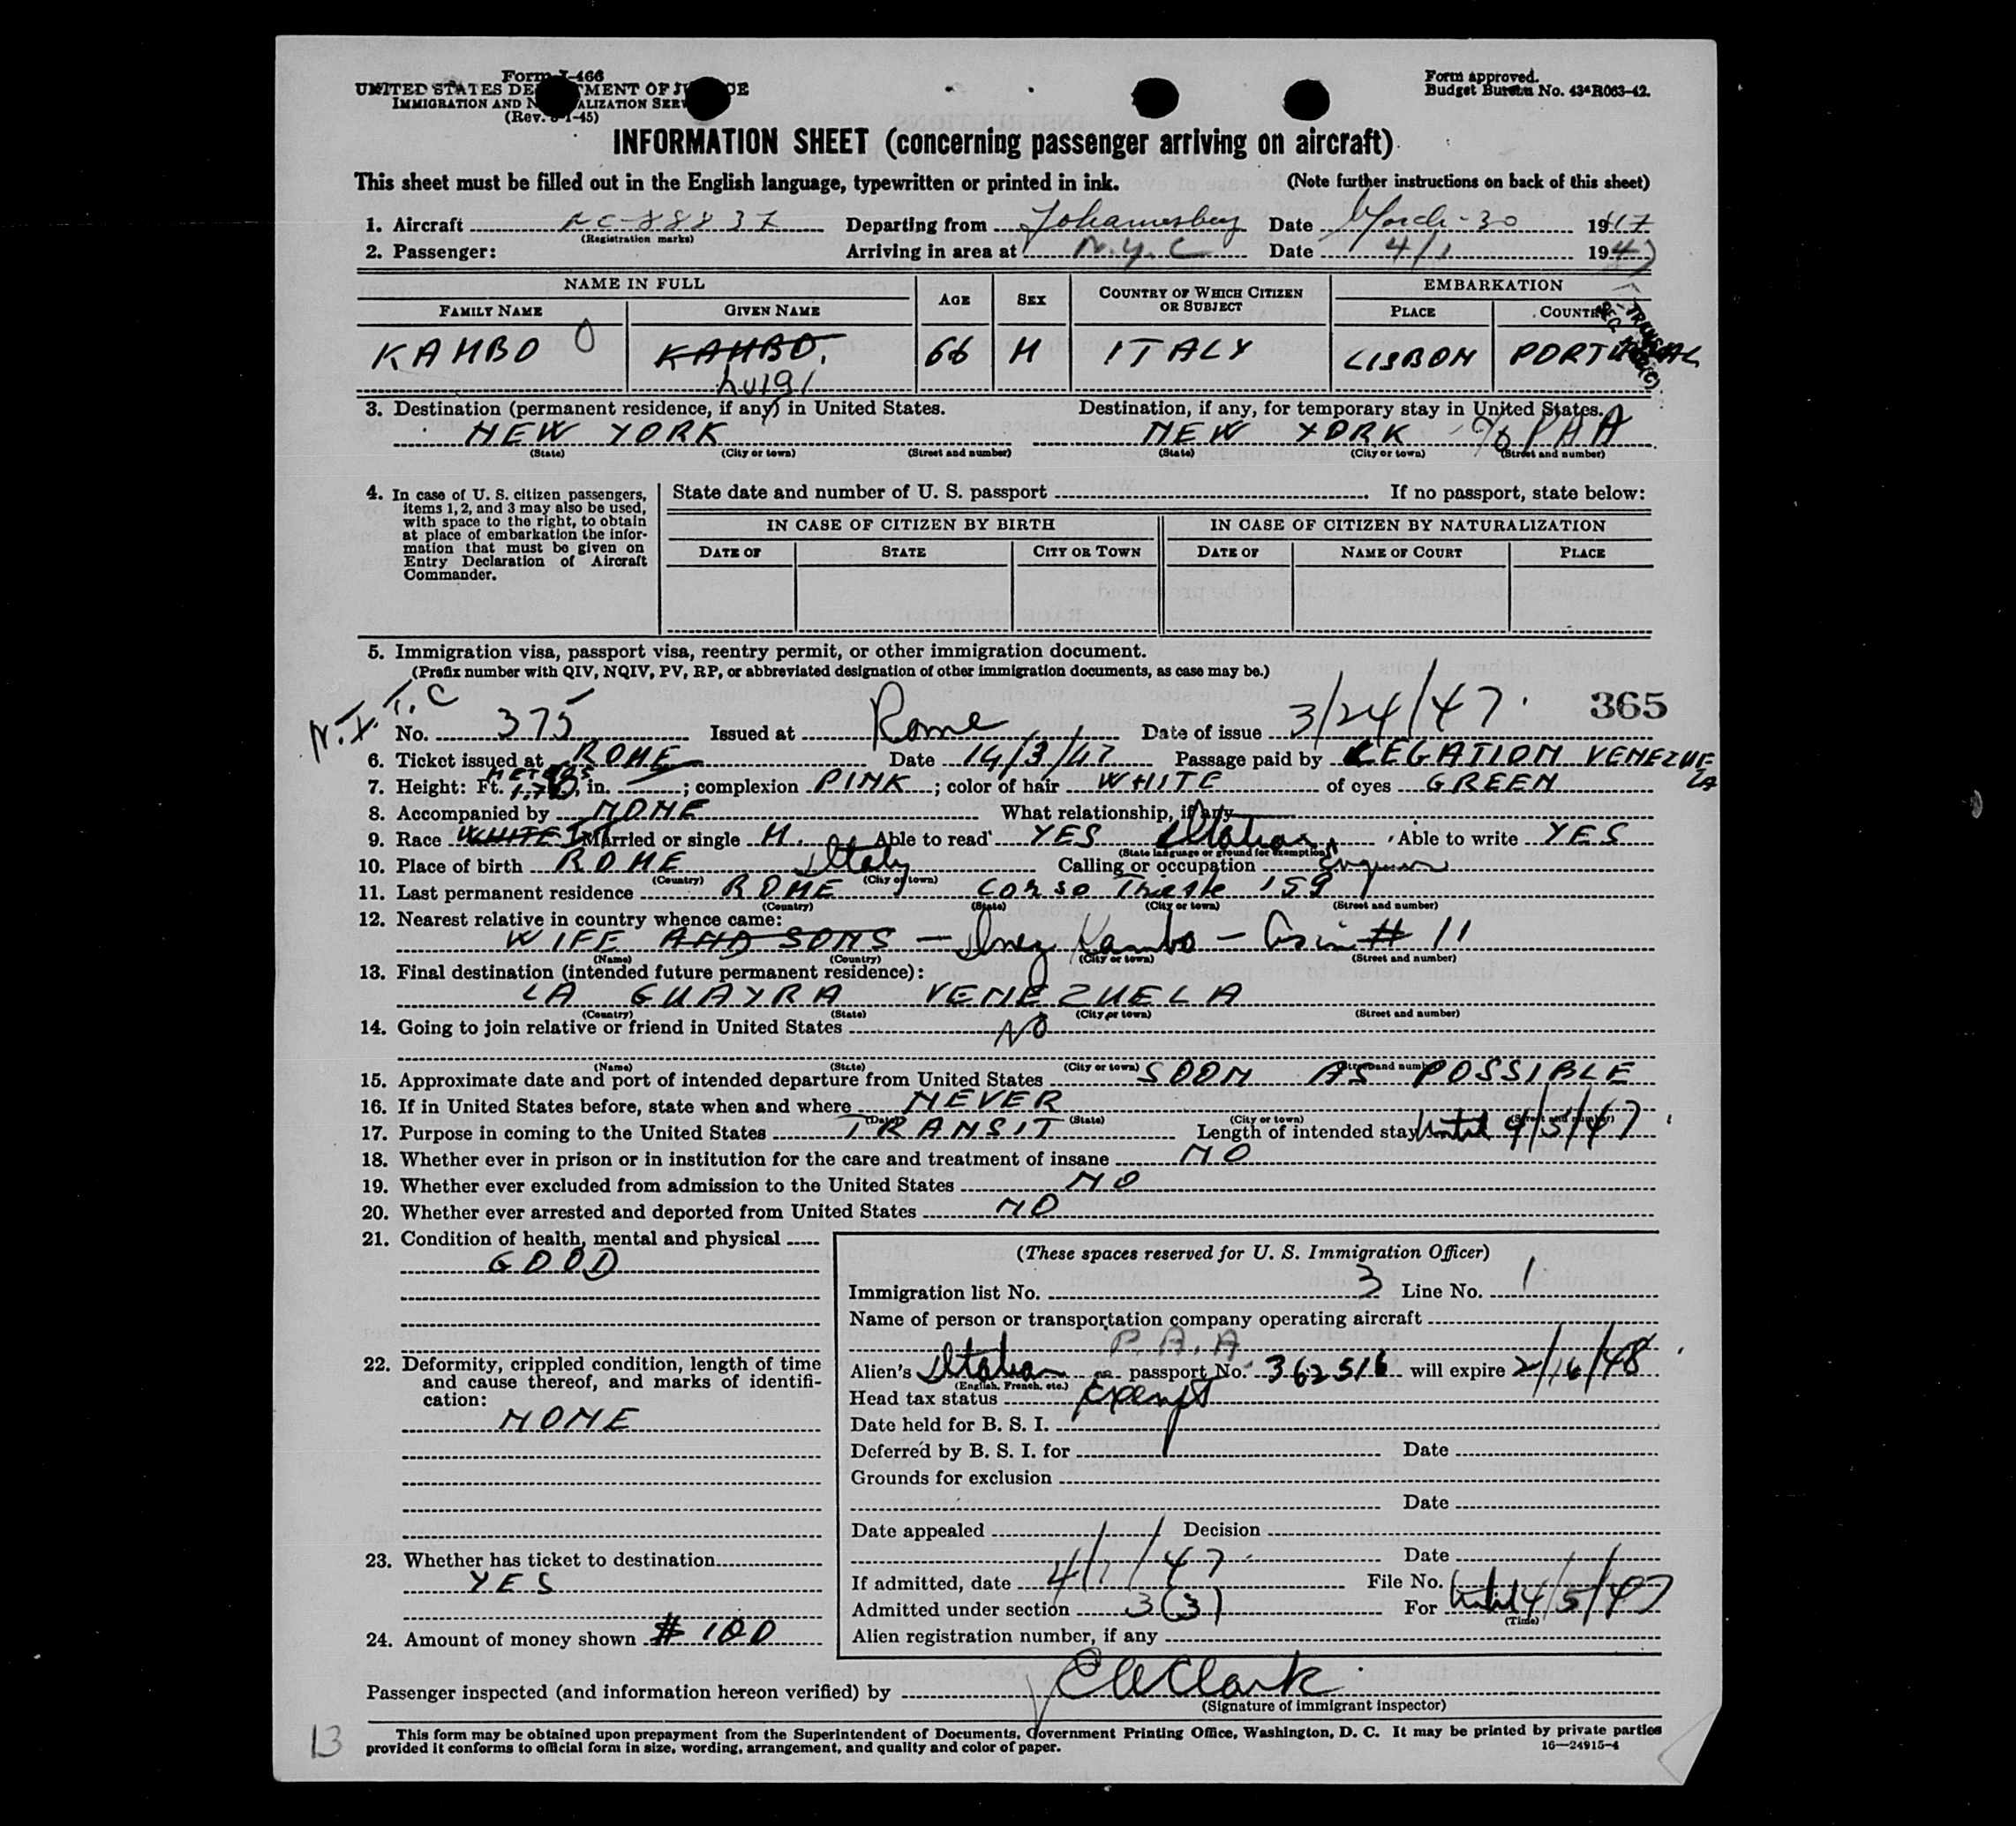 Form I-466
UNITED STATES DEPARTMENT OF JUSTICE
IMMIGRATION AND NATURALIZATION SERVICE
(Rev. 1-45)
Form approved.
Budget Bureau No. 43-R063-42.
INFORMATION SHEET (concerning passenger arriving on aircraft)
This sheet must be filled out in the English language, typewritten or printed in ink. (Note further instructions on back of this sheet)
1. Aircraft NC-88837 Departing from Johannesburg Date March-30 1947
(Registration marks)
2. Passenger: Arriving in area at N.Y.C Date 4/1 1947
NAME IN FULL AGE SEX COUNTRY OF WHICH CITIZEN OR SUBJECT EMBARKATION
FAMILY NAME GIVEN NAME PLACE COUNTRY
KAMBO KAMBO. 66 M ITALY LISBON PORTUGAL
Luigi
3. Destination (permanent residence, if any) in United States. Destination, if any, for temporary stay in United States.
NEW YORK NEW YORK % PAA
(State) (City or town) (Street and number) (State) (City or town) (Street and number)
4. In case of U. S. citizen passengers, items 1, 2, and 3 may also be used, with space to the right, to obtain at place of embarkation the information that must be given on Entry Declaration of Aircraft Commander.
State date and number of U. S. passport If no passport, state below:
IN CASE OF CITIZEN BY BIRTH IN CASE OF CITIZEN BY NATURALIZATION
DATE OF STATE CITY OR TOWN DATE OF NAME OF COURT PLACE
5. Immigration visa, passport visa, reentry permit, or other immigration document.
(Prefix number with QIV, NQIV, PV, RP, or abbreviated designation of other immigration documents, as case may be.)
N.I.T.C
No. 375 Issued at Rome Date of issue 3/24/47. 365
6. Ticket issued at ROME Date 14/3/47 Passage paid by LEGATION VENEZUELA
7. Height: Ft. METERS 1.70, in. ; complexion PINK ; color of hair WHITE of eyes GREEN
8. Accompanied by NONE What relationship, if any
9. Race WHITE Married or single M. Able to read YES Italian Able to write YES
(State language or ground for exemption)
10. Place of birth ROME Italy Calling or occupation Engineer
(Country) (City or town)
11. Last permanent residence ROME Corso Trieste 159
(Country) (State) (City or town) (Street and number)
12. Nearest relative in country whence came:
WIFE AND SONS — Inez Kambo — # 11
(Name) (Country) (City or town) (Street and number)
13. Final destination (intended future permanent residence):
LA GUAYRA VENEZUELA
(Country) (State) (City or town) (Street and number)
14. Going to join relative or friend in United States NO
(Name) (State) (City or town) (Street and number)
15. Approximate date and port of intended departure from United States SOON AS POSSIBLE
16. If in United States before, state when and where NEVER
(Date) (State) (City or town) (Street and number)
17. Purpose in coming to the United States TRANSIT Length of intended stay until 4/5/47
18. Whether ever in prison or in institution for the care and treatment of insane NO
19. Whether ever excluded from admission to the United States NO
20. Whether ever arrested and deported from United States NO
21. Condition of health, mental and physical
GOOD
22. Deformity, crippled condition, length of time and cause thereof, and marks of identification:
NONE
23. Whether has ticket to destination
YES
24. Amount of money shown # 100
(These spaces reserved for U. S. Immigration Officer)
Immigration list No. 3 Line No. 1
Name of person or transportation company operating aircraft
P.A.A
Alien's Italian passport No. 362516 will expire 2/16/48
(English, French, etc.)
Head tax status Exempt
Date held for B. S. I.
Deferred by B. S. I. for Date
Grounds for exclusion
Date
Date appealed Decision
Date
If admitted, date 4/1/47 File No.
Admitted under section 3(3) For until 4/5/47
(Time)
Alien registration number, if any
Passenger inspected (and information hereon verified) by E W Clark
(Signature of immigrant inspector)
This form may be obtained upon prepayment from the Superintendent of Documents, Government Printing Office, Washington, D. C. It may be printed by private parties
provided it conforms to official form in size, wording, arrangement, and quality and color of paper. 16—24915-4
13